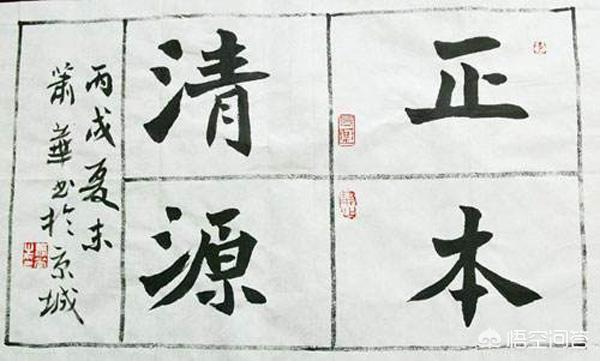 正本
清源
丙戌夏末
萧華书於京城
悟空问答